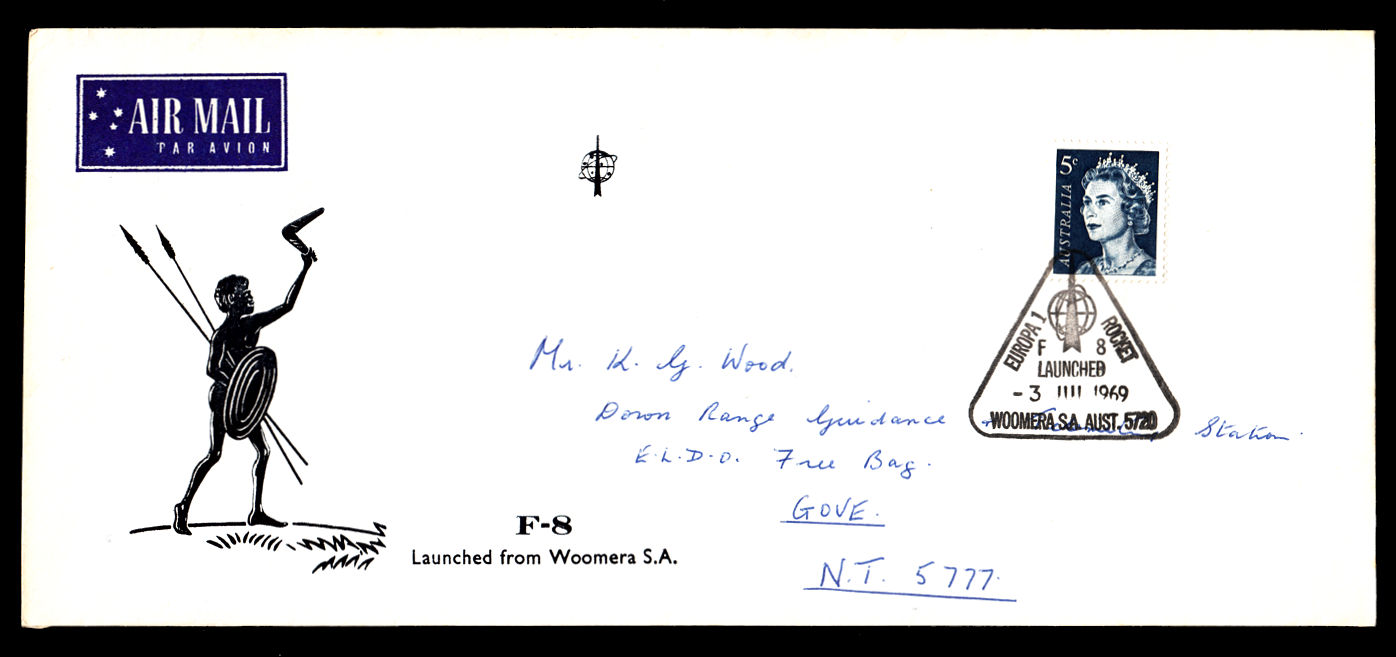 AIR MAIL
PAR AVION
5c
AUSTRALIA
EUROPA 1 ROCKET
F 8
LAUNCHED
- 3 JUL 1969
WOOMERA S.A. AUST. 5720
Mr. K. G. Wood.
Down Range Guidance Station.
E.L.D.O. Free Bag.
GOVE.
N.T. 5777.
F-8
Launched from Woomera S.A.